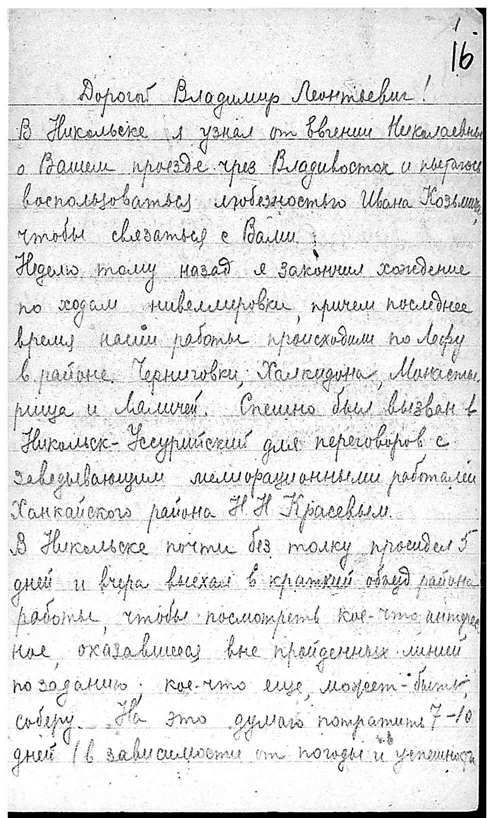 16
Дорогой Владимир Леонтьевич!
В Никольске я узнал от Евгении Николаевны
о Вашем проезде чрез Владивосток и пытаюсь
воспользоваться любезностью Ивана Козьмича,
чтобы связаться с Вами.
Неделю тому назад я закончил хождение
по ходам нивеллировки, причем последнее
время наши работы происходили по Лефу
в районе Черниговки, Халкидона, Монасты-
рища и Вассиановки. Спешно был вызван в
Никольск-Уссурийский для переговоров с
заведывающим мелиорационными работами
Ханкайского района Н Н Красевым.
В Никольске почти без толку просидел 5
дней и вчера выехал в краткий объезд района
работы, чтобы посмотреть кое-что интерес
ное, оказавшееся вне пройденных линий
по заданию; кое-что еще, может-быть,
соберу. На это думаю потратить 7-10
дней (в зависимости от погоды и успешности